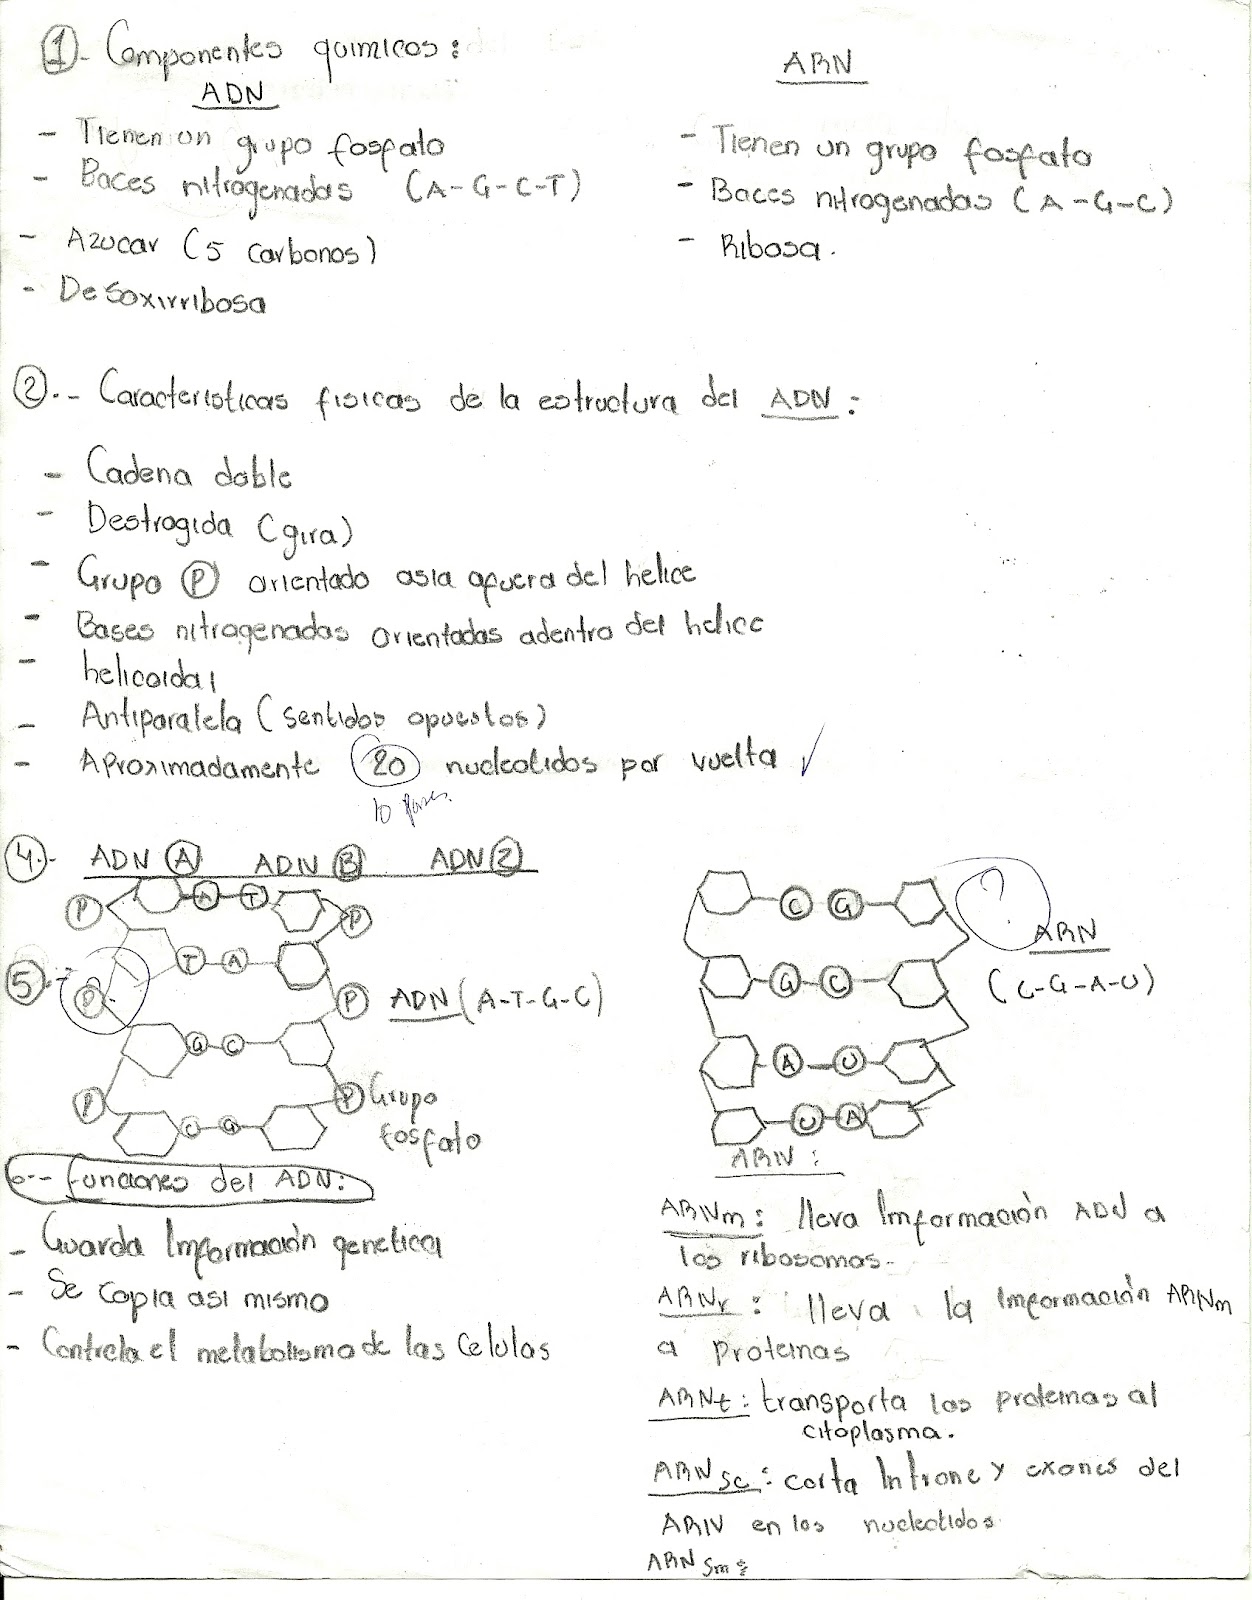 1.- Componentes quimicos:
ADN
- Tienen un grupo fosfato
- Baces nitrogenadas (A-G-C-T)
- Azucar (5 carbonos)
- Desoxirribosa
ARN
- Tienen un grupo fosfato
- Baces nitrogenadas (A-G-C)
- Ribosa.
2.- Caracteristicas fisicas de la estructura del ADN:
- Cadena doble
- Destrogida (gira)
- Grupo P orientado asia afuera del helice
- Bases nitrogenadas orientadas adentro del helice
- helicoidal
- Antiparalela (sentidos opuestos)
- Aproximadamente 20 nucleotidos por vuelta ✓
10 pares.
4.- ADN A ADN B ADN Z
P A T P
T A
5.- P P ADN (A-T-G-C)
G C
P P Grupo
fosfato
C G
C G ?
ARN
G C (C-G-A-U)
A U
U A
6-- funciones del ADN:
- Guarda Imformación genetica
- Se copia asi mismo
- Controla el metabolismo de las Celulas
ARN:
ARNm: lleva Imformación ADN a
los ribosomas.
ARNr: lleva la Imformación ARNm
a proteinas
ARNt: transporta las proteinas al
citoplasma.
ARNsc: corta Introne y exones del
ARN en los nucleotidos
ARNsm: